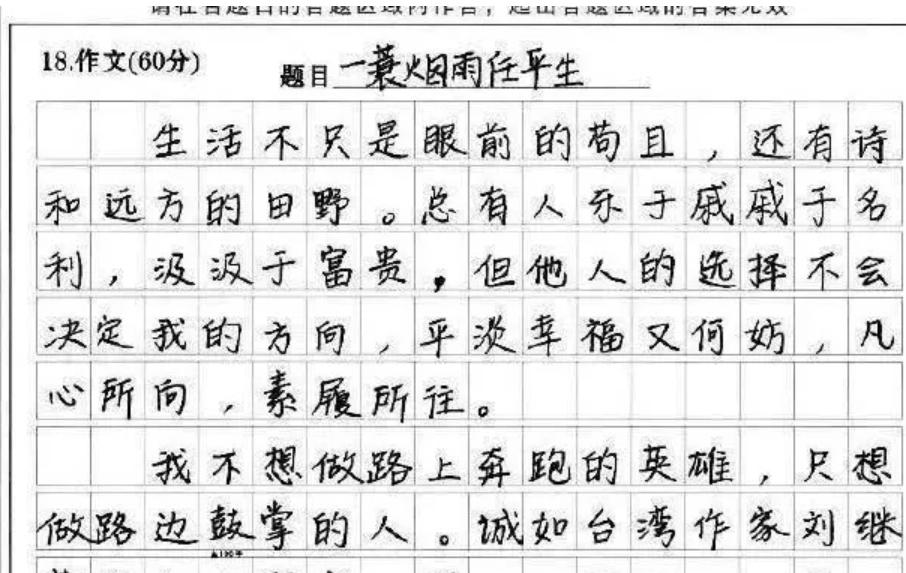 请在各题目的答题区域内作答，超出答题区域的答案无效
18.作文(60分) 题目 一蓑烟雨任平生
生活不只是眼前的苟且，还有诗
和远方的田野。总有人乐于戚戚于名
利，汲汲于富贵，但他人的选择不会
决定我的方向，平淡幸福又何妨，凡
心所向，素履所往。
我不想做路上奔跑的英雄，只想
做路边鼓掌的人。诚如台湾作家刘继